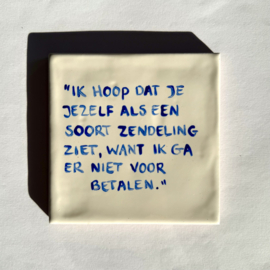 "IK HOOP DAT JE
JEZELF ALS EEN
SOORT ZENDELING
ZIET, WANT IK GA
ER NIET VOOR
BETALEN."